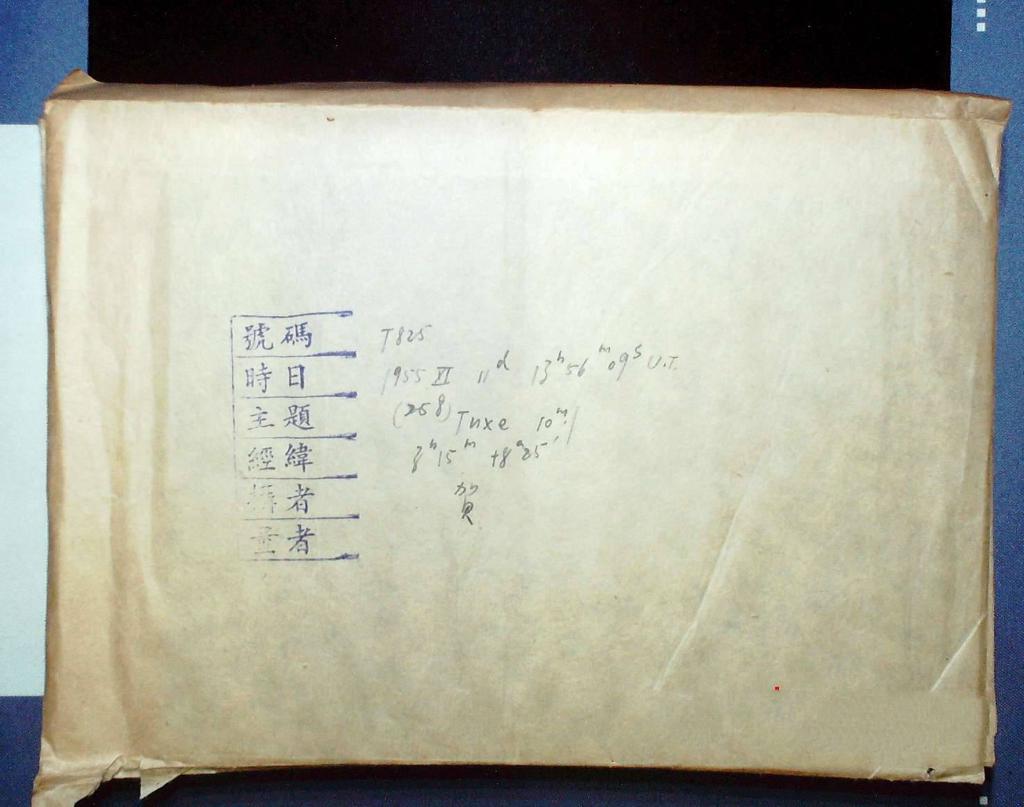 號碼 T825
時日 1955 XI 11ᵈ 13ʰ56ᵐ09ˢ U.T.
主題 (258) Tuxe 10ᵐ.1
經緯 3ʰ15ᵐ +8°25′
攝者 賀
量者